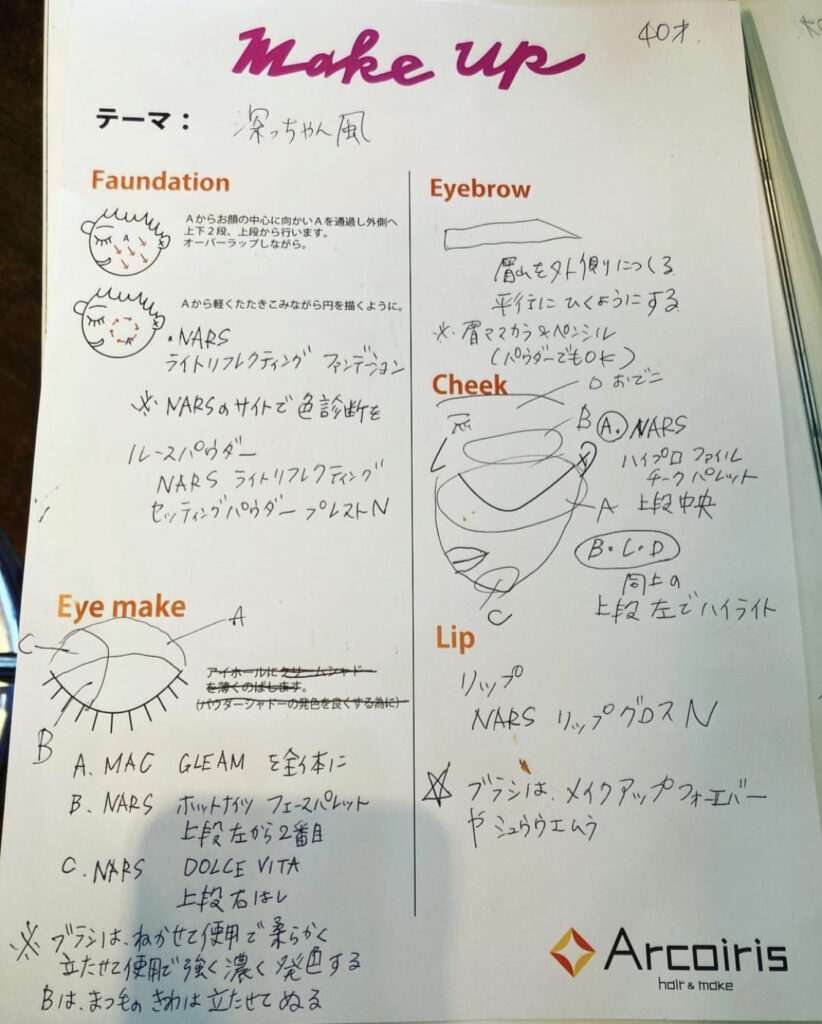 Make up
40才.
テーマ： 深っちゃん風
Faundation
Aからお顔の中心に向かいAを通過し外側へ
上下2段、上段から行います。
オーバーラップしながら。
A
Aから軽くたたきこみながら円を描くように。
A
・NARS
ライトリフレクティング ファンデーション
※ NARSのサイトで色診断を
ルースパウダー
NARS ライトリフレクティング
セッティングパウダー プレストN
Eye make
A
C
B
アイホールにクリームシャドー
を薄くのばします。
(パウダーシャドーの発色を良くする為に)
A. MAC GLEAM を全体に
B. NARS ホットナイツ フェースパレット
上段左から2番目
C. NARS DOLCE VITA
上段右はし
※ ブラシは、ねかせて使用で柔らかく
立たせて使用で強く濃く発色する
Bは、まつ毛のきわは立たせてぬる
Eyebrow
眉山を外側りにつくる
平行にひくようにする
※ 眉マスカラ&ペンシル
(パウダーでもOK)
Cheek
D おでこ
B
A
C
A. NARS
ハイプロファイル
チークパレット
上段中央
B・C・D
同上の
上段左でハイライト
Lip
リップ
NARS リップグロスN
☆ ブラシは、メイクアップフォーエバー
やシュウウエムラ
Arcoiris
hair & make